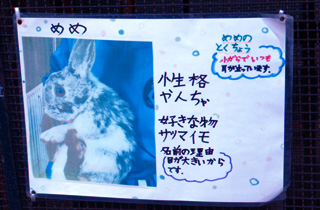 めめ
めめの
とくちょう
小がらでいつも
耳が立っています。
性格
やんちゃ
好きな物
サツマイモ
名前の理由
目が大きいから
です。